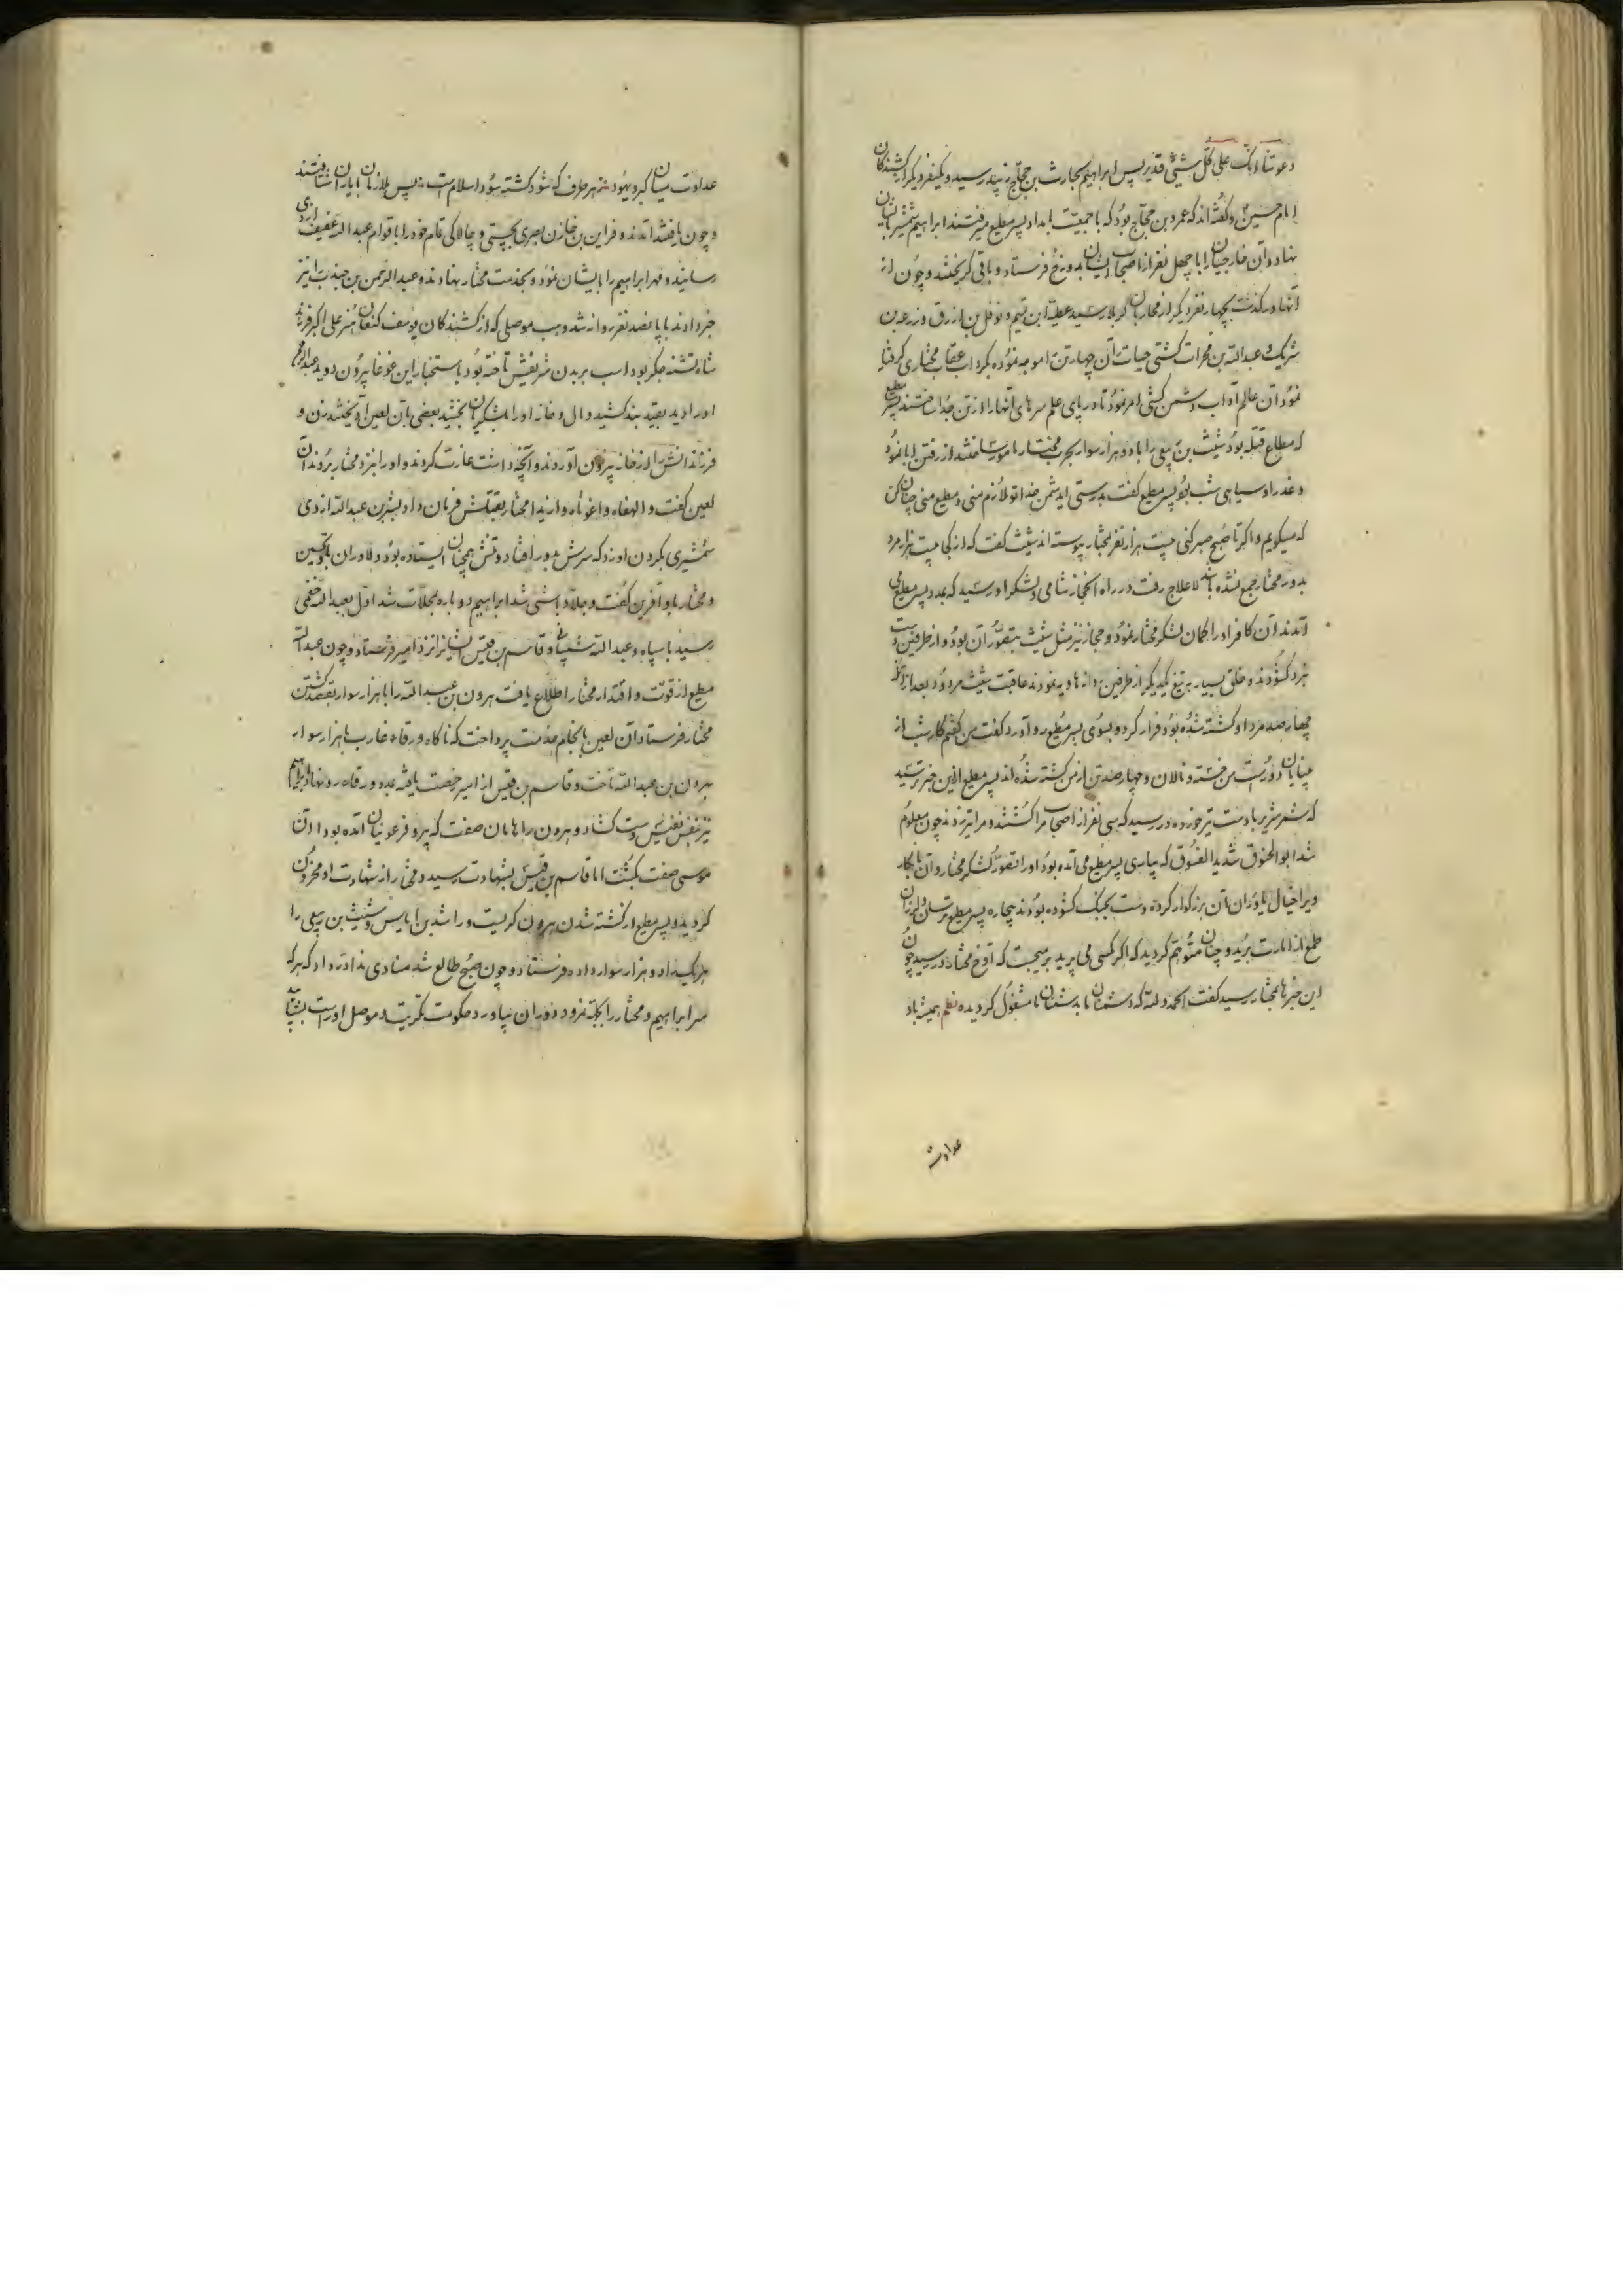 دعوتنا انک علی کل شیئ قدیر پس ابراهیم بحارث بن حجاج زبید رسید و یکنفر دیگر از کشندکان
امام حسین و گفته اند که عمرو بن حجاج بود که با جمعیت بامداد پسر مطیع میرفتند ابراهیم شمشیر بانان
نهاد و آن خارجیان را با چهل نفر از اصحاب ایشان بدوزخ فرستاد و باقی کریختند و چون از
آنها درکذشت بچهار نفر دیگر از محاربان کربلا رسید عطیه ابن تیم و نوفل بن ازرق و زرعه بن
شریک و عبدالله بن کشتی حیات آن چهار تن را موجه نموده بکرداب عقاب مختاری گرفتار
نمود آن عالم آداب دشمن کشی امر نمود تا در پای علم سرهای آنها را از تن جدا ساختند پسر مطیع
که مطاع فتنه بود شیث بن ربیعی را با دو هزار سوار بحرب مختار مامور ساختند از رفتن ابا نمود
و عذر او سیاهی شب بود پسر مطیع گفت بدرستی ایدشمن خدا تو ملازم منی و مطیع منی چنان کن
که میکویم و اکر تا صبح صبر کنی بیست هزار نفر بمختار پیوسته اند شیث گفت که از کی بیست هزار مرد
بدور مختار جمع نشده باشد لاعلاج رفت در راه حجاز شامی و لشکر او رسید که بمدد پسر مطیع می
آمدند آن کافر او را کمان لشکر مختار نمود و حجاز نیز مثل شیث بتصور آن بود و از طرفین دست
بنبرد کشودند و خلق بسیار بتیغ یکدیگر از طرفین روانه هاویه نمودند عاقبت شیث مردود بعد از آنکه
چهار صد مرد او کشته شده بود فرار کرد و بسوی پسر مطیع رو آورد گفت من گفتم کار شب از
بینایان دور است من خسته و نالان و چهار صد تن از من کشته شده اند پسر مطیع ازین خبر ترسید
که شمر شریر با دست تیر خورده در رسید که سی نفر از اصحاب مرا کشتند و مرا تیر زدند چون معلوم
شد ابوالحنوق شدید الفسوق که بیاری پسر مطیع می آمده بود او را تصور لشکر مختار و آن نابکار
ویرا خیال یاوران آن بزرکوار کرده دست بجنک کشوده بودند بیچاره پسر مطیع ترسان و لرزان
طمع از امارت برید و چنان متوهم کردید که اکر مکسی می پرید برمیجست که آوخ مختار در رسید چون
این خبرها بمختار رسید گفت الحمد ولله که دشمنان ما بدشمنان ما مشغول کردیده نظم همیشه باد
عداوت
عداوت میان کبر و یهود ز هر طرف که شود کشته سود اسلامست پس ملازمان با یاران شتافتند
و چون یافتند آمدند و فراین بن خازن بصری بچستی و چالاکی تمام خود را باقوام عبدالله عفیف ازدی
رسانید و مهر ابراهیم را بایشان نمود و بخدمت مختار نهادند و عبدالرحمن بن جندب را نیز
خبر دادند با پانصد نفر روانه شد وهب موصلی که از کشندکان یوسف کنعان هنر علی اکبر فرزند
شاه تشنه جکر بود اسب بر بدن شریفش تاخته بود باستخبار این غوغا بیرون دوید عبدالرحمن
او را دید بقید بند کشید و مال و خانه او را بلشکریان بخشید بعضی بآن لعین آویختند زن و
فرزندانش را از خانه بیرون آوردند و آنچه داشت غارت کردند و او را نزد مختار بردند آن
لعین گفت والهفاه واغوثاه وازیدا مختار بقتلش فرمان داد بشر بن عبدالله ازدی
شمشیری بکردن او زد که سرش بدور افتاد و تنش همچنان ایستاده بود دلاوران با تحسین
و مختار باو آفرین گفت و جلاد باشی شد ابراهیم دوباره بمحلات شد اول بعبدالله خثعمی
رسید با سپاه و عبدالله شیبانی و قاسم بن قیس ایشانرا نزد امیر فرستاد و چون عبدالله
مطیع از قوت و اقتدار مختار اطلاع یافت هرون بن عبدالله را با هزار سوار بقصد کشتن
مختار فرستاد آن لعین بانجام خدمت پرداخت که ناکاه ورقاء غارب با هزار سوار
بهرون بن عبدالله تاخت و قاسم بن قیس از امیر رخصت یافته بمدد ورقاء رو نهاد ابراهیم
نیز بنفس نفیس دست کشاد و هرون را هامان صفت که پیرو فرعونیان آمده بود آن
موسی صفت بکشت اما قاسم بن قیس بشهادت رسید و مختار از شهادت او محزون
کردید و پسر مطیع از کشته شدن هرون کریست و راشد بن ایاس و شیث بن ربیعی را
هریک را دو هزار سوار داده فرستاد و چون صبح طالع شد منادی ندا در داد که هر که
سر ابراهیم و مختار را بجهة نمرود دوران بیاورد حکومت تکریت و موصل او راست بشتابید